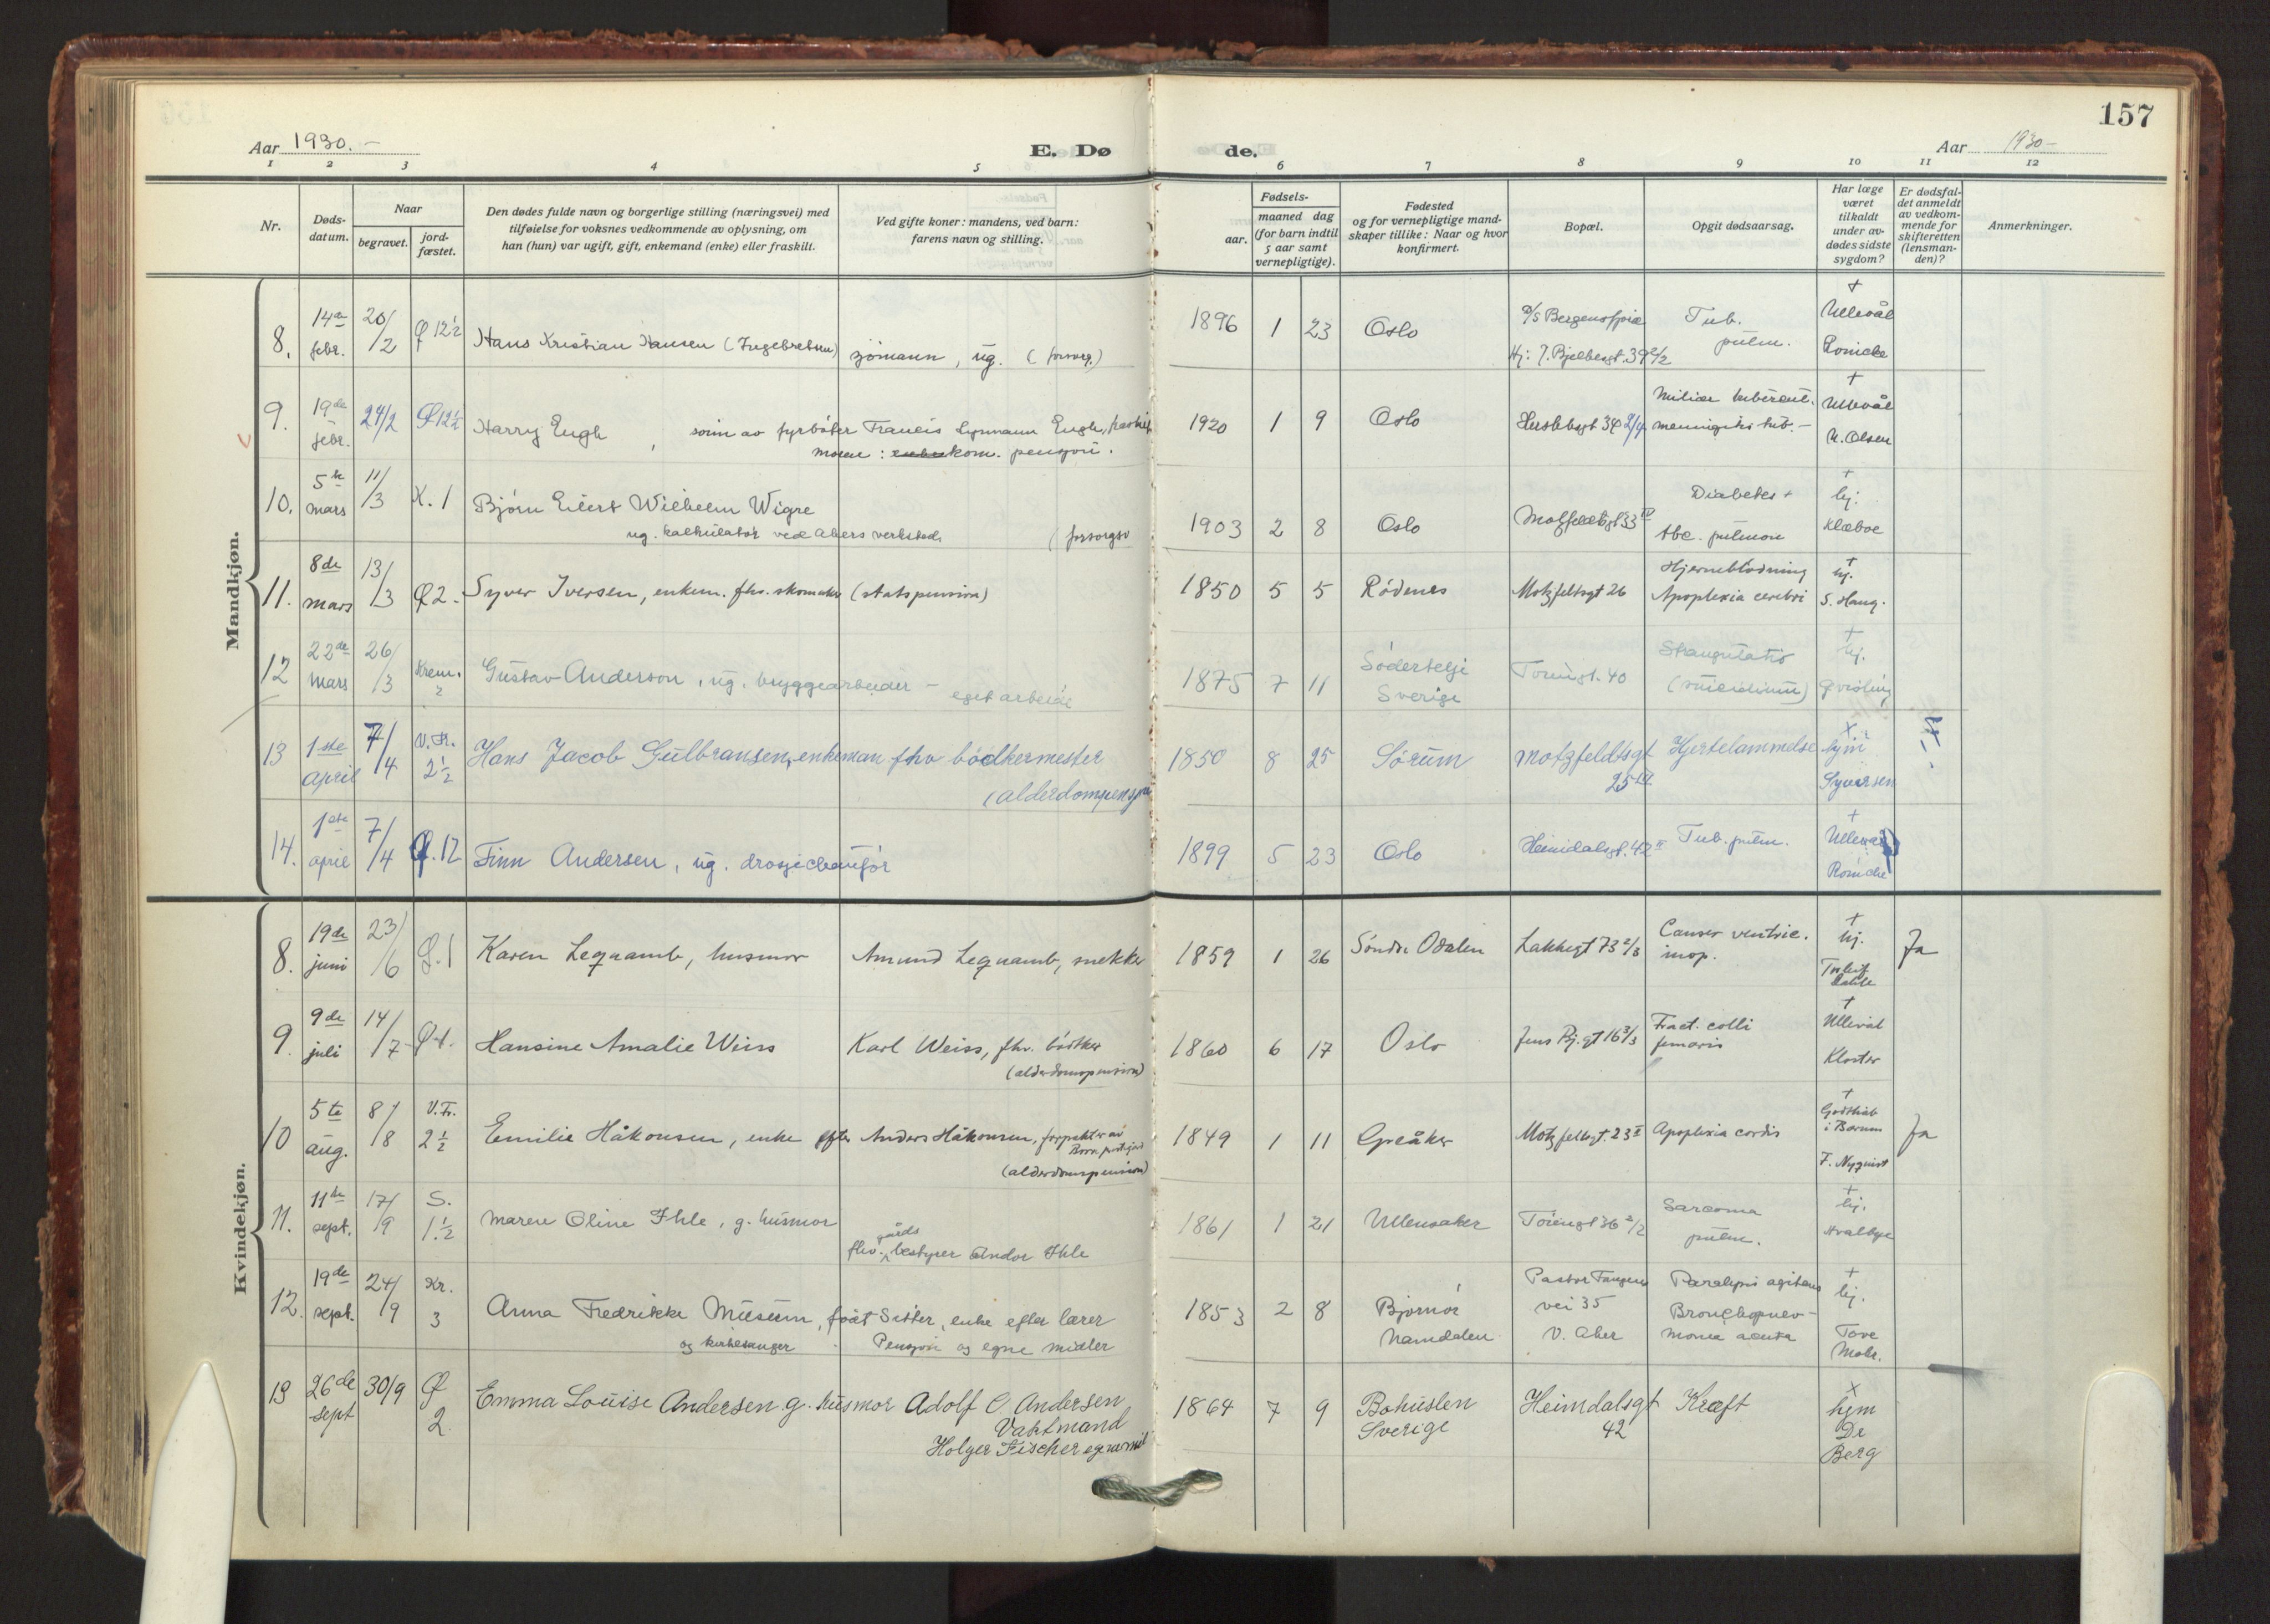 157
Aar 1930.-
E. Dø
de.
Aar 1930-
1 2 3 4 5 6 7 8 9 10 11 12
Nr.
Døds-
datum.
Naar
begravet.
jord-
fæstet.
Den dødes fulde navn og borgerlige stilling (næringsvei) med
tilføielse for voksnes vedkommende av oplysning, om
han (hun) var ugift, gift, enkemand (enke) eller fraskilt.
Ved gifte koner: mandens, ved barn:
farens navn og stilling.
Fødsels-
aar.
maaned dag
(for barn indtil
5 aar samt
vernepligtige).
Fødested
og for vernepligtige mand-
skaper tillike: Naar og hvor
konfirmert.
Bopæl.
Opgit dødsaarsag.
Har læge
været
tilkaldt
under av-
dødes sidste
sygdom?
Er dødsfal-
det anmeldt
av vedkom-
mende for
skifteretten
(lensman-
den)?
Anmerkninger.
Mandkjøn.
8. 14de febr. 20/2 Ø 12½ Hans Kristian Hansen (Ingebretsen) sjømann, ug. (forsorg.) 1896 1 23 Oslo
Hj: J. Bjelkesgt. 39 2/2 Tub. pulm. + Ullevål
9. 19de febr. 24/2 Ø 12½ Harry Engh, sønn av fyrbøter Francis Lynmann Engh, fraskilt
moren: kom. pensjon.
1920 1 9 Oslo Herslebsgt 34 2/4 Miliær tuberkul. meningitis tub.- + Ullevål N. Olsen
10. 5te mars 11/3 K. 1 Bjørn Eilert Wilhelm Wigre
ug. kalkulatør ved Akers verksted (forsorgsv
1903 2 8 Oslo Motzfeldtsgt 33 IV Diabetes + tbc. pulmon + hj. Klæboe
11. 8de mars 13/3 Ø 2. Syver Iversen, enkem. fhv. skomaker (statspension) 1850 5 5 Rødenes Motzfeldtsgt 26 Hjerneblødning Apoplexia cerebri + hj. S. Haug.
12 22de mars 26/3 Krem. 2 Gustav Anderson, ug. bryggearbeider - eget arbeide 1875 7 11 Södertelje Sverige Tøiengt. 40 (suicidium) + hj. Qvisling
13 1ste april 7/4 V. Fr. 2½ Hans Jacob Gulbransen, enkeman fhv bødkermester
(alderdompensjon
1850 8 25 Sørum Motzfeldtsgt 25 III Hjertelammelse x hjm Syversen
14. 1ste april 7/4 Ø. 12 Finn Andersen, ug. drosjechauffør 1899 5 23 Oslo Heimdalsgt. 42 II Tub. pulm. + Ullevål
Kvindekjøn.
8. 19de juni 23/6 Ø. 1 Karen Legnamb, husmor Amund Legnamb, snekker 1859 1 26 Søndre Odalen Lakkegt 73 2/3 Cancer ventric. inop. + hj. Ja
9. 9de juli 14/7 Ø 1. Hansine Amalie Weiss Karl Weiss, fhv. bødtker
(alderdomspension)
1860 6 17 Oslo Jens Bj. gt 16 3/3 Fract. colli femoris + Ullevål Kloster
10 5te aug. 8/8 V. Fr. 2½ Emilie Håkonsen, enke efter Anders Håkonsen, forpakter av
(alderdomspension)
1849 1 11 Greåker Motzfeldtsgt. 23 I Apoplexia cordis + Godthåb i Bærum F. Nyquist Ja
11. 11te sept. 17/9 S. 1.½ Maren Oline Ihle, g. husmor
fhv. gårdsbestyrer Andor Ihle
1861 1 21 Ullensaker Tøiengt 36 2/2 Sarcoma pulm. + hj. Hvalbye
12. 19de sept. 24/9 Kr. 3 Anna Fredrikke Museum, født Sitter, enke efter lærer
og kirkesanger Pensjon og egne midler
1853 2 8 Bjørnør Namdalen Pastor Fangens vei 35 V. Aker Paralysis agitans Bronchopneumonia acuta + hj. Tove Mohr.
13 26de sept 30/9 Ø 2. Emma Louise Andersen g. husmor Adolf C. Andersen
Vaktmand
Holger Fischer egnarmid
1864 7 9 Bohuslen Sverige Heimdalsgt 42 Kræft x hjm De Berg